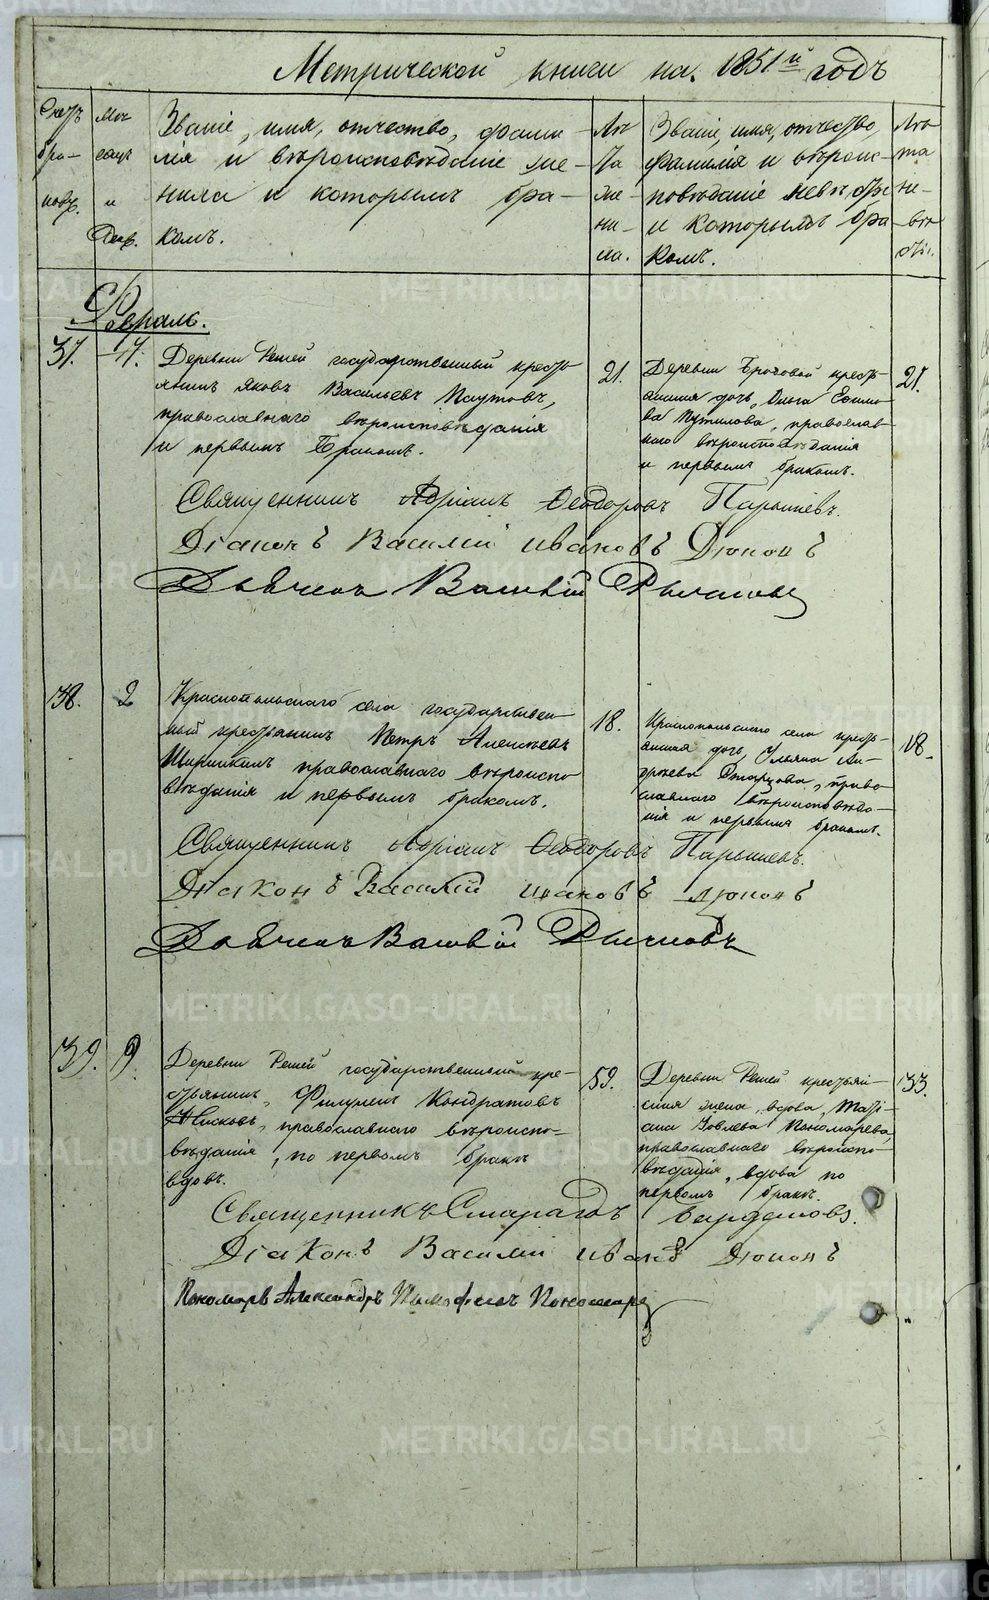 Метрической книги на 1851й годъ
Счетъ бра- ковъ.
Мѣ- сяцъ и День.
Званіе, имя, отчество, фами-
лія и вѣроисповѣданіе же-
ниха и которымъ бра-
комъ.
Лѣ- та же- ни- ха.
Званіе, имя, отчество,
фамилія и вѣроис-
повѣданіе невѣсты
и которымъ бра
комъ.
Лѣ- та не- вѣ- сты.
Февраль.
37. 17.
Деревни Рѣшей государственный кресть
янинъ Яковъ Васильевъ Паутовъ,
православнаго вѣроисповѣданія
и первымъ бракомъ.
21.
Деревни Бродовой кресть-
янина дочь, Ольга Ефимо
ва Путилова, православ-
наго вѣроисповѣданія
и первымъ бракомъ.
21.
Священникъ Адріанъ Ѳеодоровъ Парышевъ.
Діаконъ Василій Ивановъ Дюконъ
Дьячекъ Василій
38. 2
Краснопольскаго села государствен-
ный крестьянинъ Петръ Алексѣевъ
Ширинкинъ православнаго вѣроиспо
вѣданія и первымъ бракомъ.
18.
Краснопольскаго села кресть-
янина дочь, Ульяна Ан-
дреева православнаго вѣроисповѣда-
нія и первымъ бракомъ.
18.
Священникъ Адріанъ Ѳеодоровъ Парышевъ.
Діаконъ Василій Ивановъ Дюконъ
Дьячекъ Василій
39. 9.
Деревни Рѣшей государственный кре-
стьянинъ, Филумен Кондратовъ
православнаго вѣроиспо-
вѣданія, по первомъ бракѣ
вдовъ.
59.
Деревни Рѣшей крестьян-
ская жена, вдова, Тать-
яна Іовлева Пономарева,
православнаго вѣроиспо-
вѣданія, вдова по
первомъ бракѣ.
33.
Священникъ Смарагдъ
Діаконъ Василій Ивановъ Дюконъ
Пономарь Александръ Тимофеевъ Пономаре
METRIKI.GASO-URAL.RU